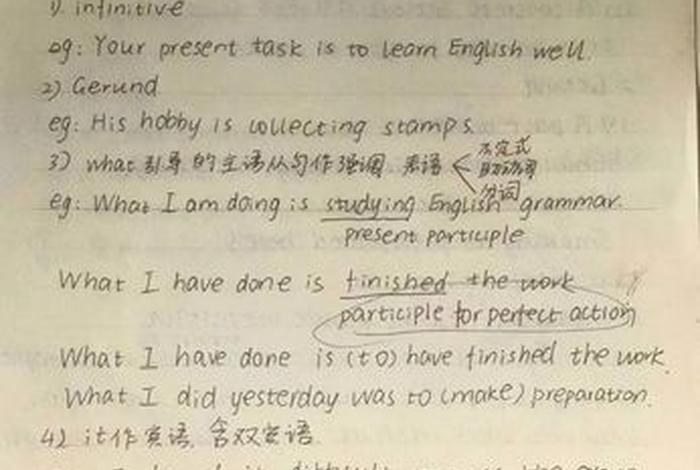 1). infinitive
eg: Your present task is to learn English well.
2) Gerund
eg: His hobby is collecting stamps.
3) what 引导的主语从句作强调 表语
不定式
动词
分词
eg: What I am doing is studying English grammar.
present participle
What I have done is finished the work
participle for perfect action
What I have done is (to) have finished the work.
What I did yesterday was to (make) preparation.
4) it作宾语,含双宾语